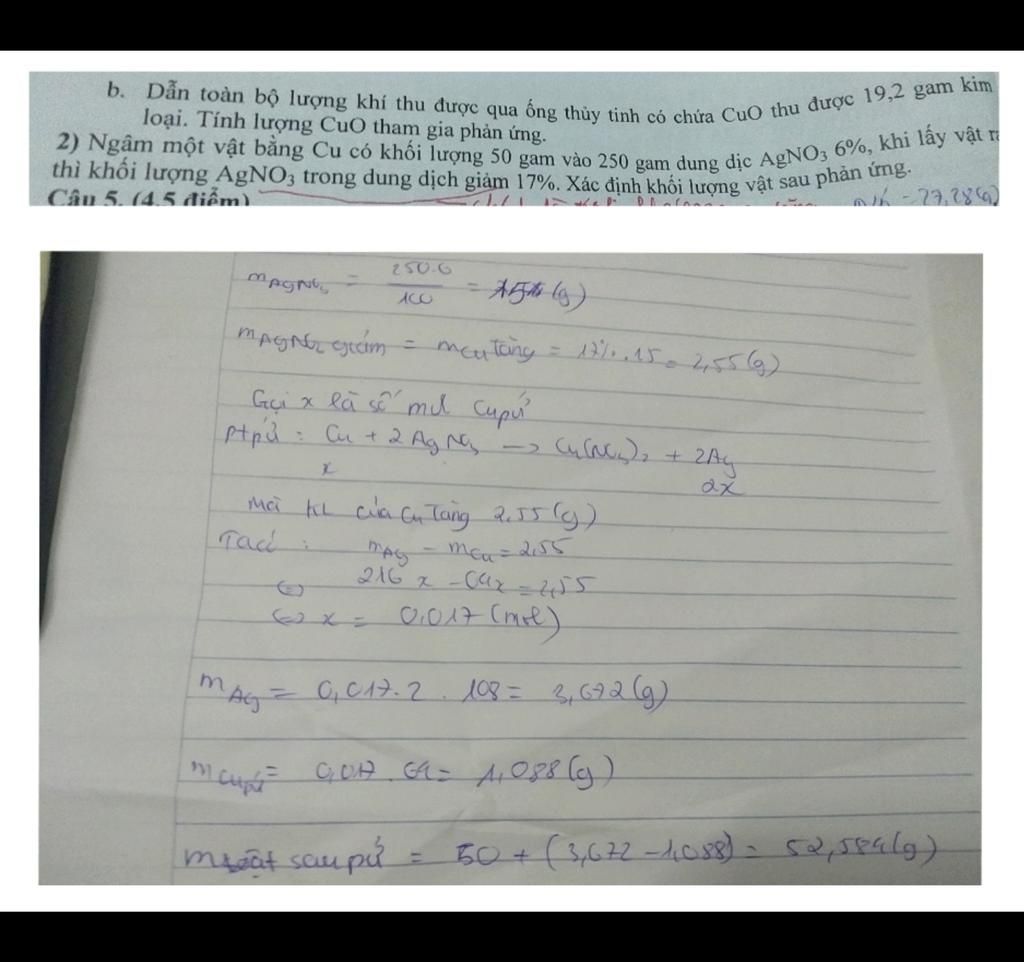 b. Dẫn toàn bộ lượng khí thu được qua ống thủy tinh có chứa CuO thu được 19,2 gam kim
loại. Tính lượng CuO tham gia phản ứng.
2) Ngâm một vật bằng Cu có khối lượng 50 gam vào 250 gam dung dịc AgNO₃ 6%, khi lấy vật r
thì khối lượng AgNO₃ trong dung dịch giảm 17%. Xác định khối lượng vật sau phản ứng.
Câu 5. (4,5 điểm)
= 27,28(g)
mAgNO₃ = 250.6/100 = 15 (g)
mAgNO₃ giảm = mCu tăng = 17%.15 = 2,55(g)
Gọi x là số mol Cu pứ
ptpứ : Cu + 2AgNO₃ → Cu(NO₃)₂ + 2Ag
x 2x
Mà KL của Cu tăng 2,55 (g)
Ta có : mAg - mCu = 2,55
⇔ 216x - 64x = 2,55
⇔ x = 0,017 (mol)
mAg = 0,017.2.108 = 3,672(g)
mCu pứ = 0,017.64 = 1,088(g)
mvật sau pứ = 50 + (3,672 - 1,088) = 52,584(g)